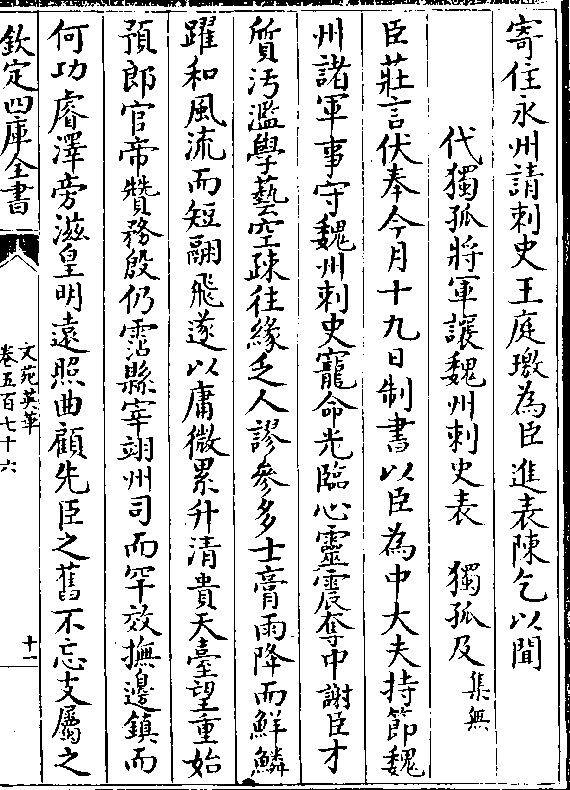 寄住永州請刺史王庭璬為臣進表陳乞以聞
代獨孤將軍讓魏州刺史表 獨孤及集無
臣莊言伏奉今月十九日制書以臣為中大夫持節魏
州諸軍事守魏州刺史寵命光臨心靈震奪中謝臣才
質汚濫學藝空疎往緣乏人謬參多士膏雨降而鮮鱗
躍和風流而短翮飛遂以庸微累升清貴天臺望重始
預郎官帝贊務殷仍霑縣宰翊州司而罕效撫邊鎮而
何功睿澤旁滋皇明遠照曲顧先臣之舊不忘支屬之
欽定四庫全書
文苑英華
卷五百七十六
十一